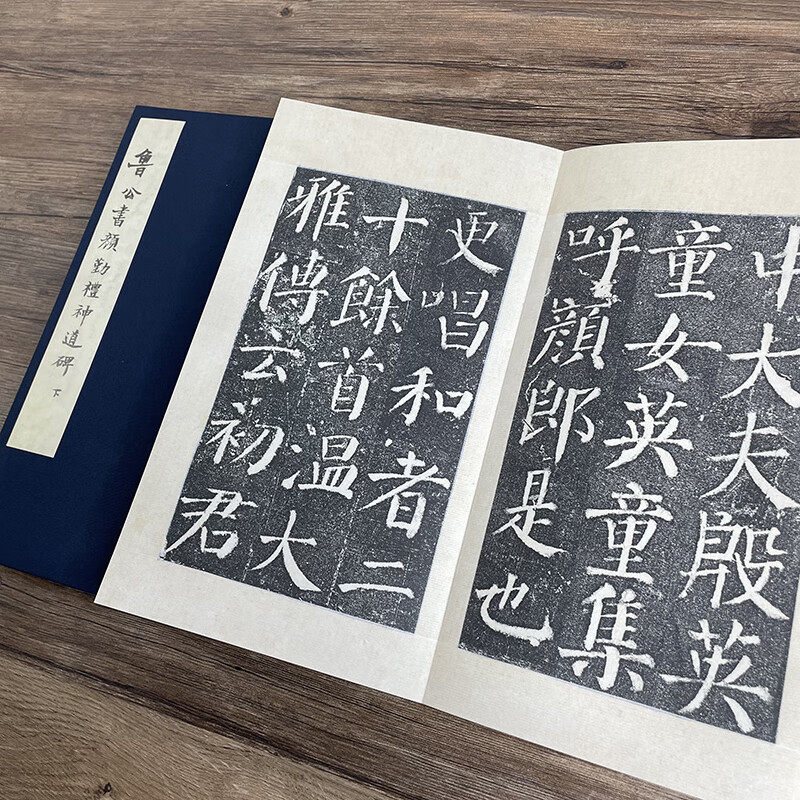 魯公書顔勤禮神道碑 下
中大夫殷英
童女英童集
呼顔郎是也
更唱和者二
十餘首温大
雅傳云初君